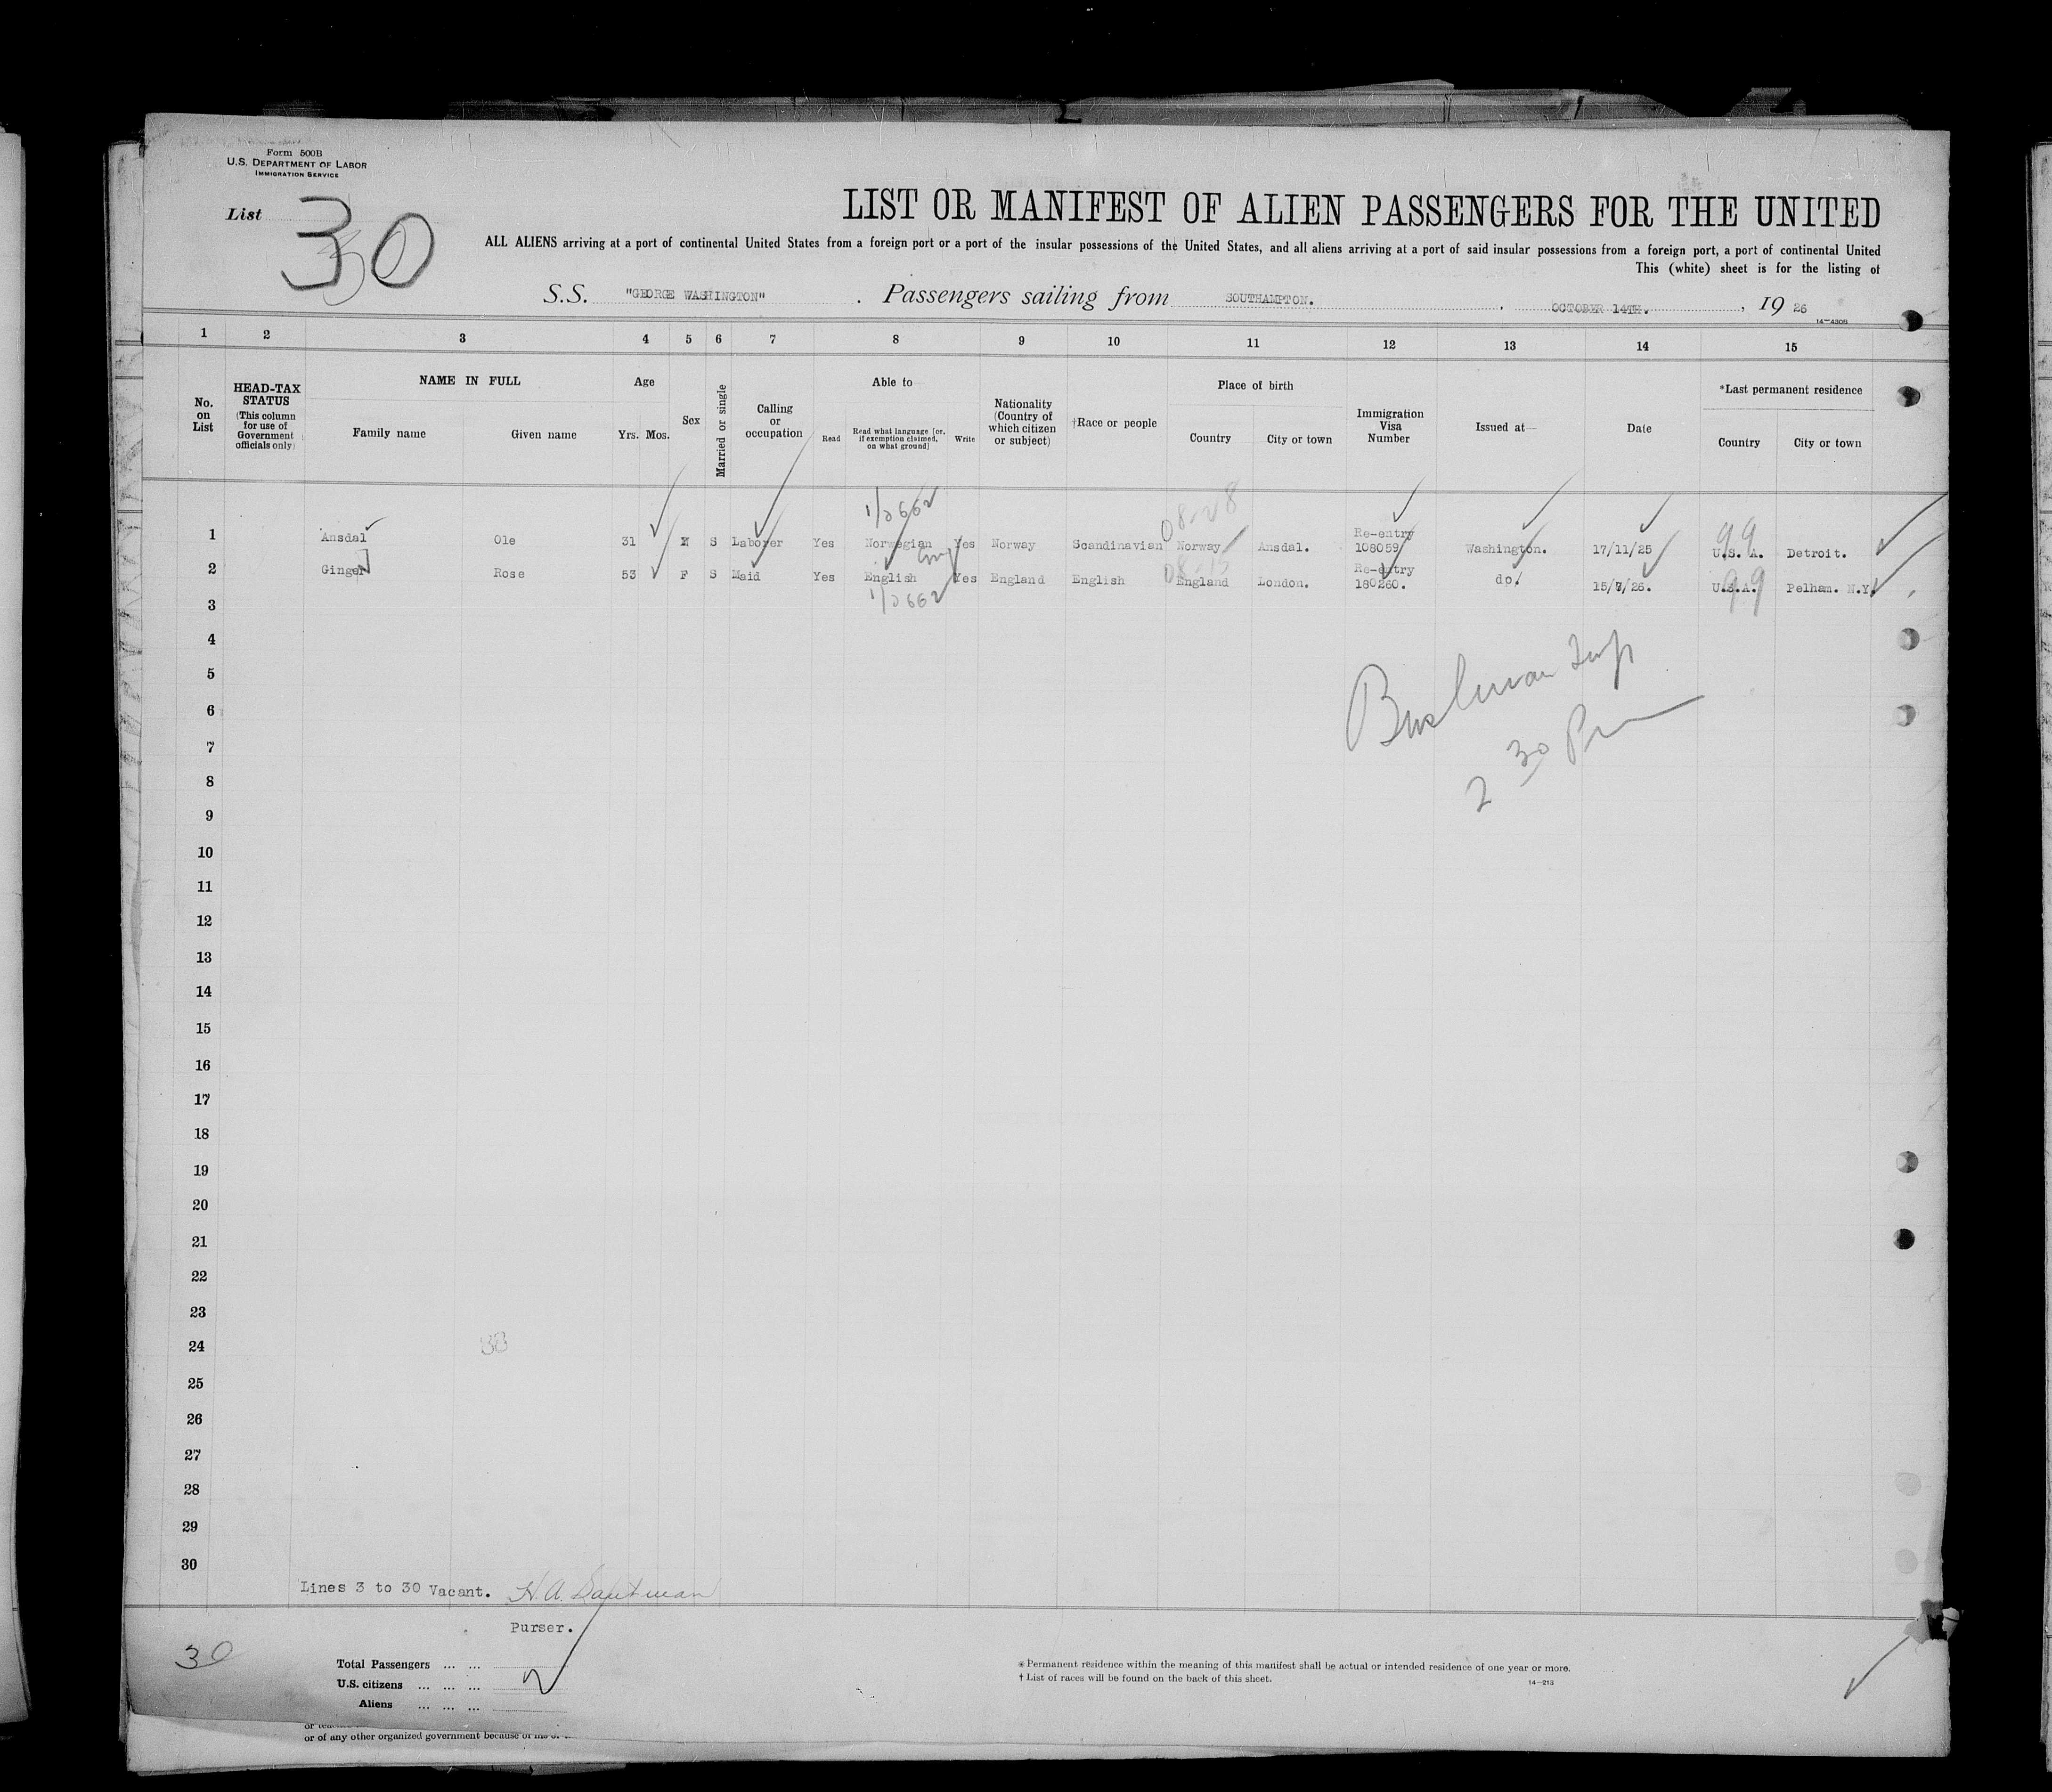 Form 500B
U.S. DEPARTMENT OF LABOR
IMMIGRATION SERVICE
List 30
LIST OR MANIFEST OF ALIEN PASSENGERS FOR THE UNITED
ALL ALIENS arriving at a port of continental United States from a foreign port or a port of the insular possessions of the United States, and all aliens arriving at a port of said insular possessions from a foreign port, a port of continental United
This (white) sheet is for the listing of
S.S. "GEORGE WASHINGTON" . Passengers sailing from SOUTHAMPTON. , OCTOBER 14TH. , 19 26
14-430B
1 2 3 4 5 6 7 8 9 10 11 12 13 14 15
No. on List
HEAD-TAX STATUS (This column for use of Government officials only)
NAME IN FULL
Family name Given name
Age
Yrs. Mos.
Sex
Married or single
Calling or occupation
Able to
Read
Read what language [or, if exemption claimed, on what ground]
Write
Nationality (Country of which citizen or subject)
†Race or people
Place of birth
Country City or town
Immigration Visa Number
Issued at—
Date
*Last permanent residence
Country City or town
1/2662 08-28
1 Ansdal Ole 31 M S Laborer Yes Norwegian Yes Norway Scandinavian Norway Ansdal. Re-entry 108059 Washington. 17/11/25 99 U.S. A. Detroit.
2 Ginger Rose 53 F S Maid Yes English Yes England English England London. Re-entry 180260. do. 15/7/26. 99 U.S.A. Pelham. N.Y.
1/2662
3
4
5
6
7
8
9
10
11
12
13
14
15
16
17
18
19
20
21
22
23
24
25
26
27
28
29
30
2 30 Pm
Lines 3 to 30 Vacant.
Purser.
30
Total Passengers ... ...
U.S. citizens ... ... ...
Aliens ... ... ...
* Permanent residence within the meaning of this manifest shall be actual or intended residence of one year or more.
† List of races will be found on the back of this sheet.
14-213
or of any other organized government because of